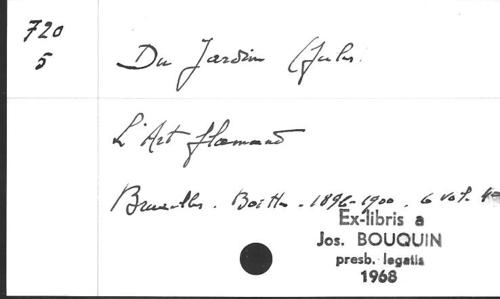 720
5
Du Jardin (Jules.
L'Art flamand
Bruxelles. Boitte. 1896-1900. 6 vol. 4°
Ex-libris a
Jos. BOUQUIN
presb. legatis
1968